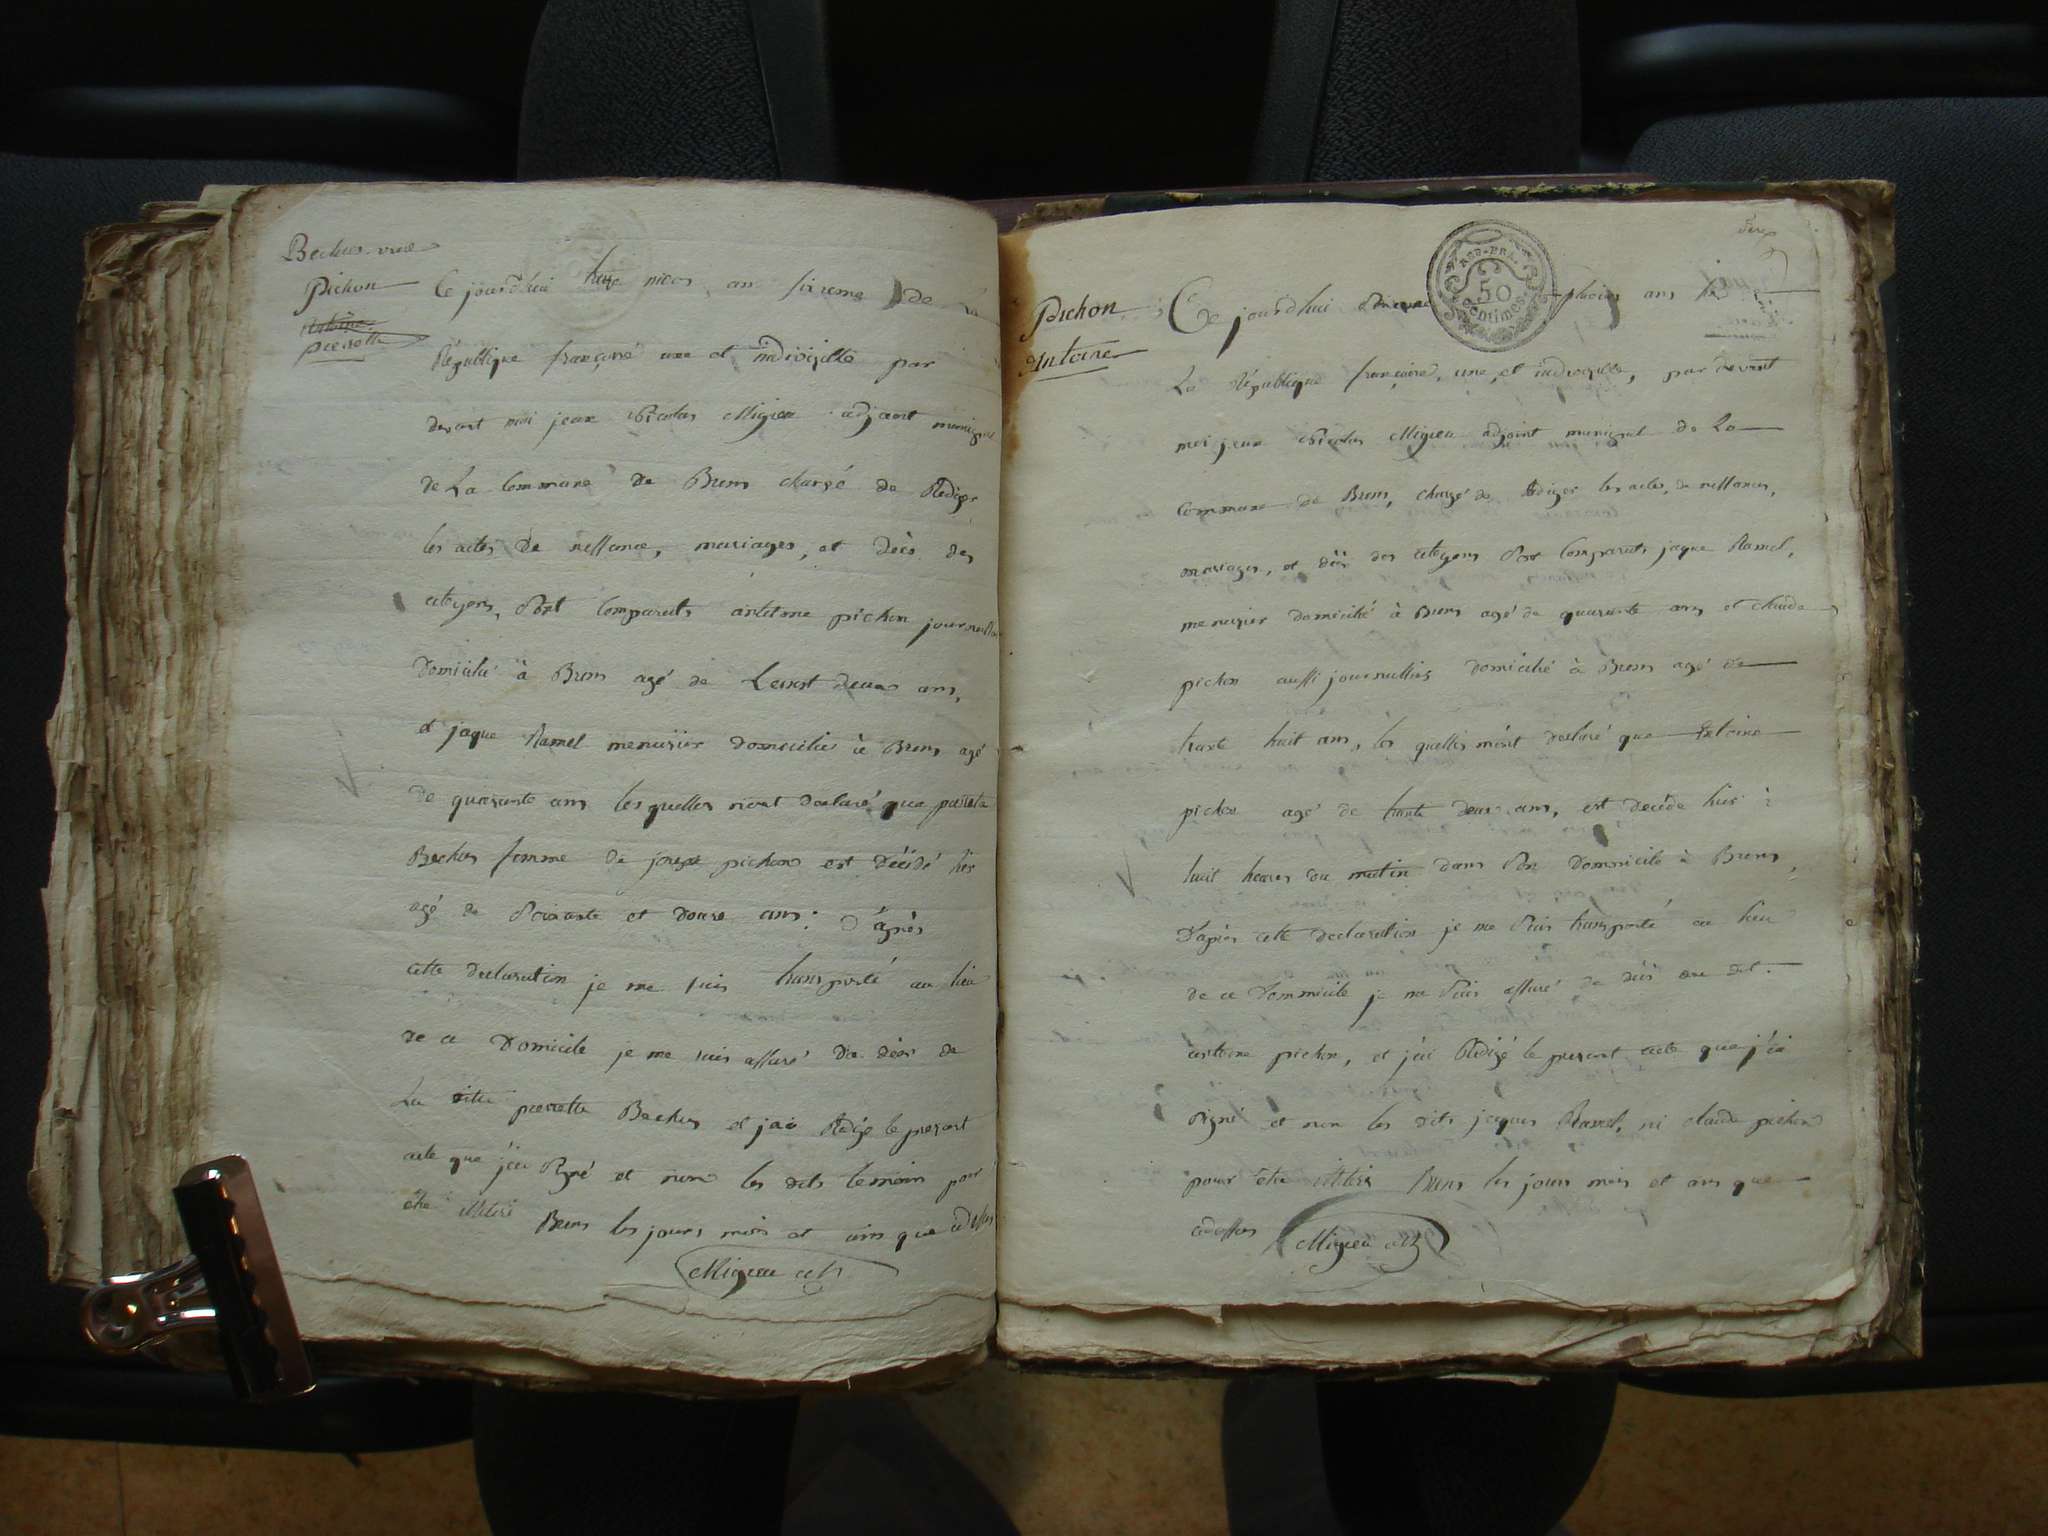 Bechus veuve
Pichon
pierrette
Ce jourd'hui nivos an sixieme de La
Republique françoise une et indivisible par
devant moi jean Nicolas Migieu adjoint municipal
de La Commune de Brens chargé de Rediger
les actes de nessance, mariages, et décès des
citoyens, sont Comparuts antoine pichon journallier
Domicilié à Brens agé de ans,
et jaque Ramel menusier domicilié à Brens agé
de quarante ans lesquelles mont declaré que pierrette
Bechus femme de josept pichon est décédé hier
agé de soixante et douze ans: d'après
cette declaration je me suis transporté au lieu
de ce Domicile je me suis assuré du décès de
La ditte pierrette Bechus et jai Redigé le present
acte que j'ai signé et non les dits temoin pour
être illitéré Brens les jours mois et ans que cidessus
Migieu adj
REP. FRA.
50
centimes
Pichon
Antoine
Ce jourd'hui pluvios ans
La Republique françoise, une, et indivisible, par devant
moi jean Nicolas Migieu adjoint municipal de La
Commune de Brens, chargé de Rediger les actes, de nessances,
mariages, et décès des citoyens sont Comparuts jaque Ramel,
menusier domicilié à Brens agé de quarante ans et claude
pichon aussi journallier domicilié à Brens agé de
trante huit ans, les quelles mont declaré que antoine
pichon agé de trante deux ans, est decédé hier à
huit heures du matin dans son Dommicile à Brens,
D'après cette declaration je me suis transporté au lieu
de ce Dommicile je me suis assuré de décès du dit
antoine pichon, et j'ai Redigé le present acte que j'ai
signé et non les dits jaques Ramel, ni claude pichon
pour être illitéré Brens les jours mois et ans que
cidessus Migieu adj